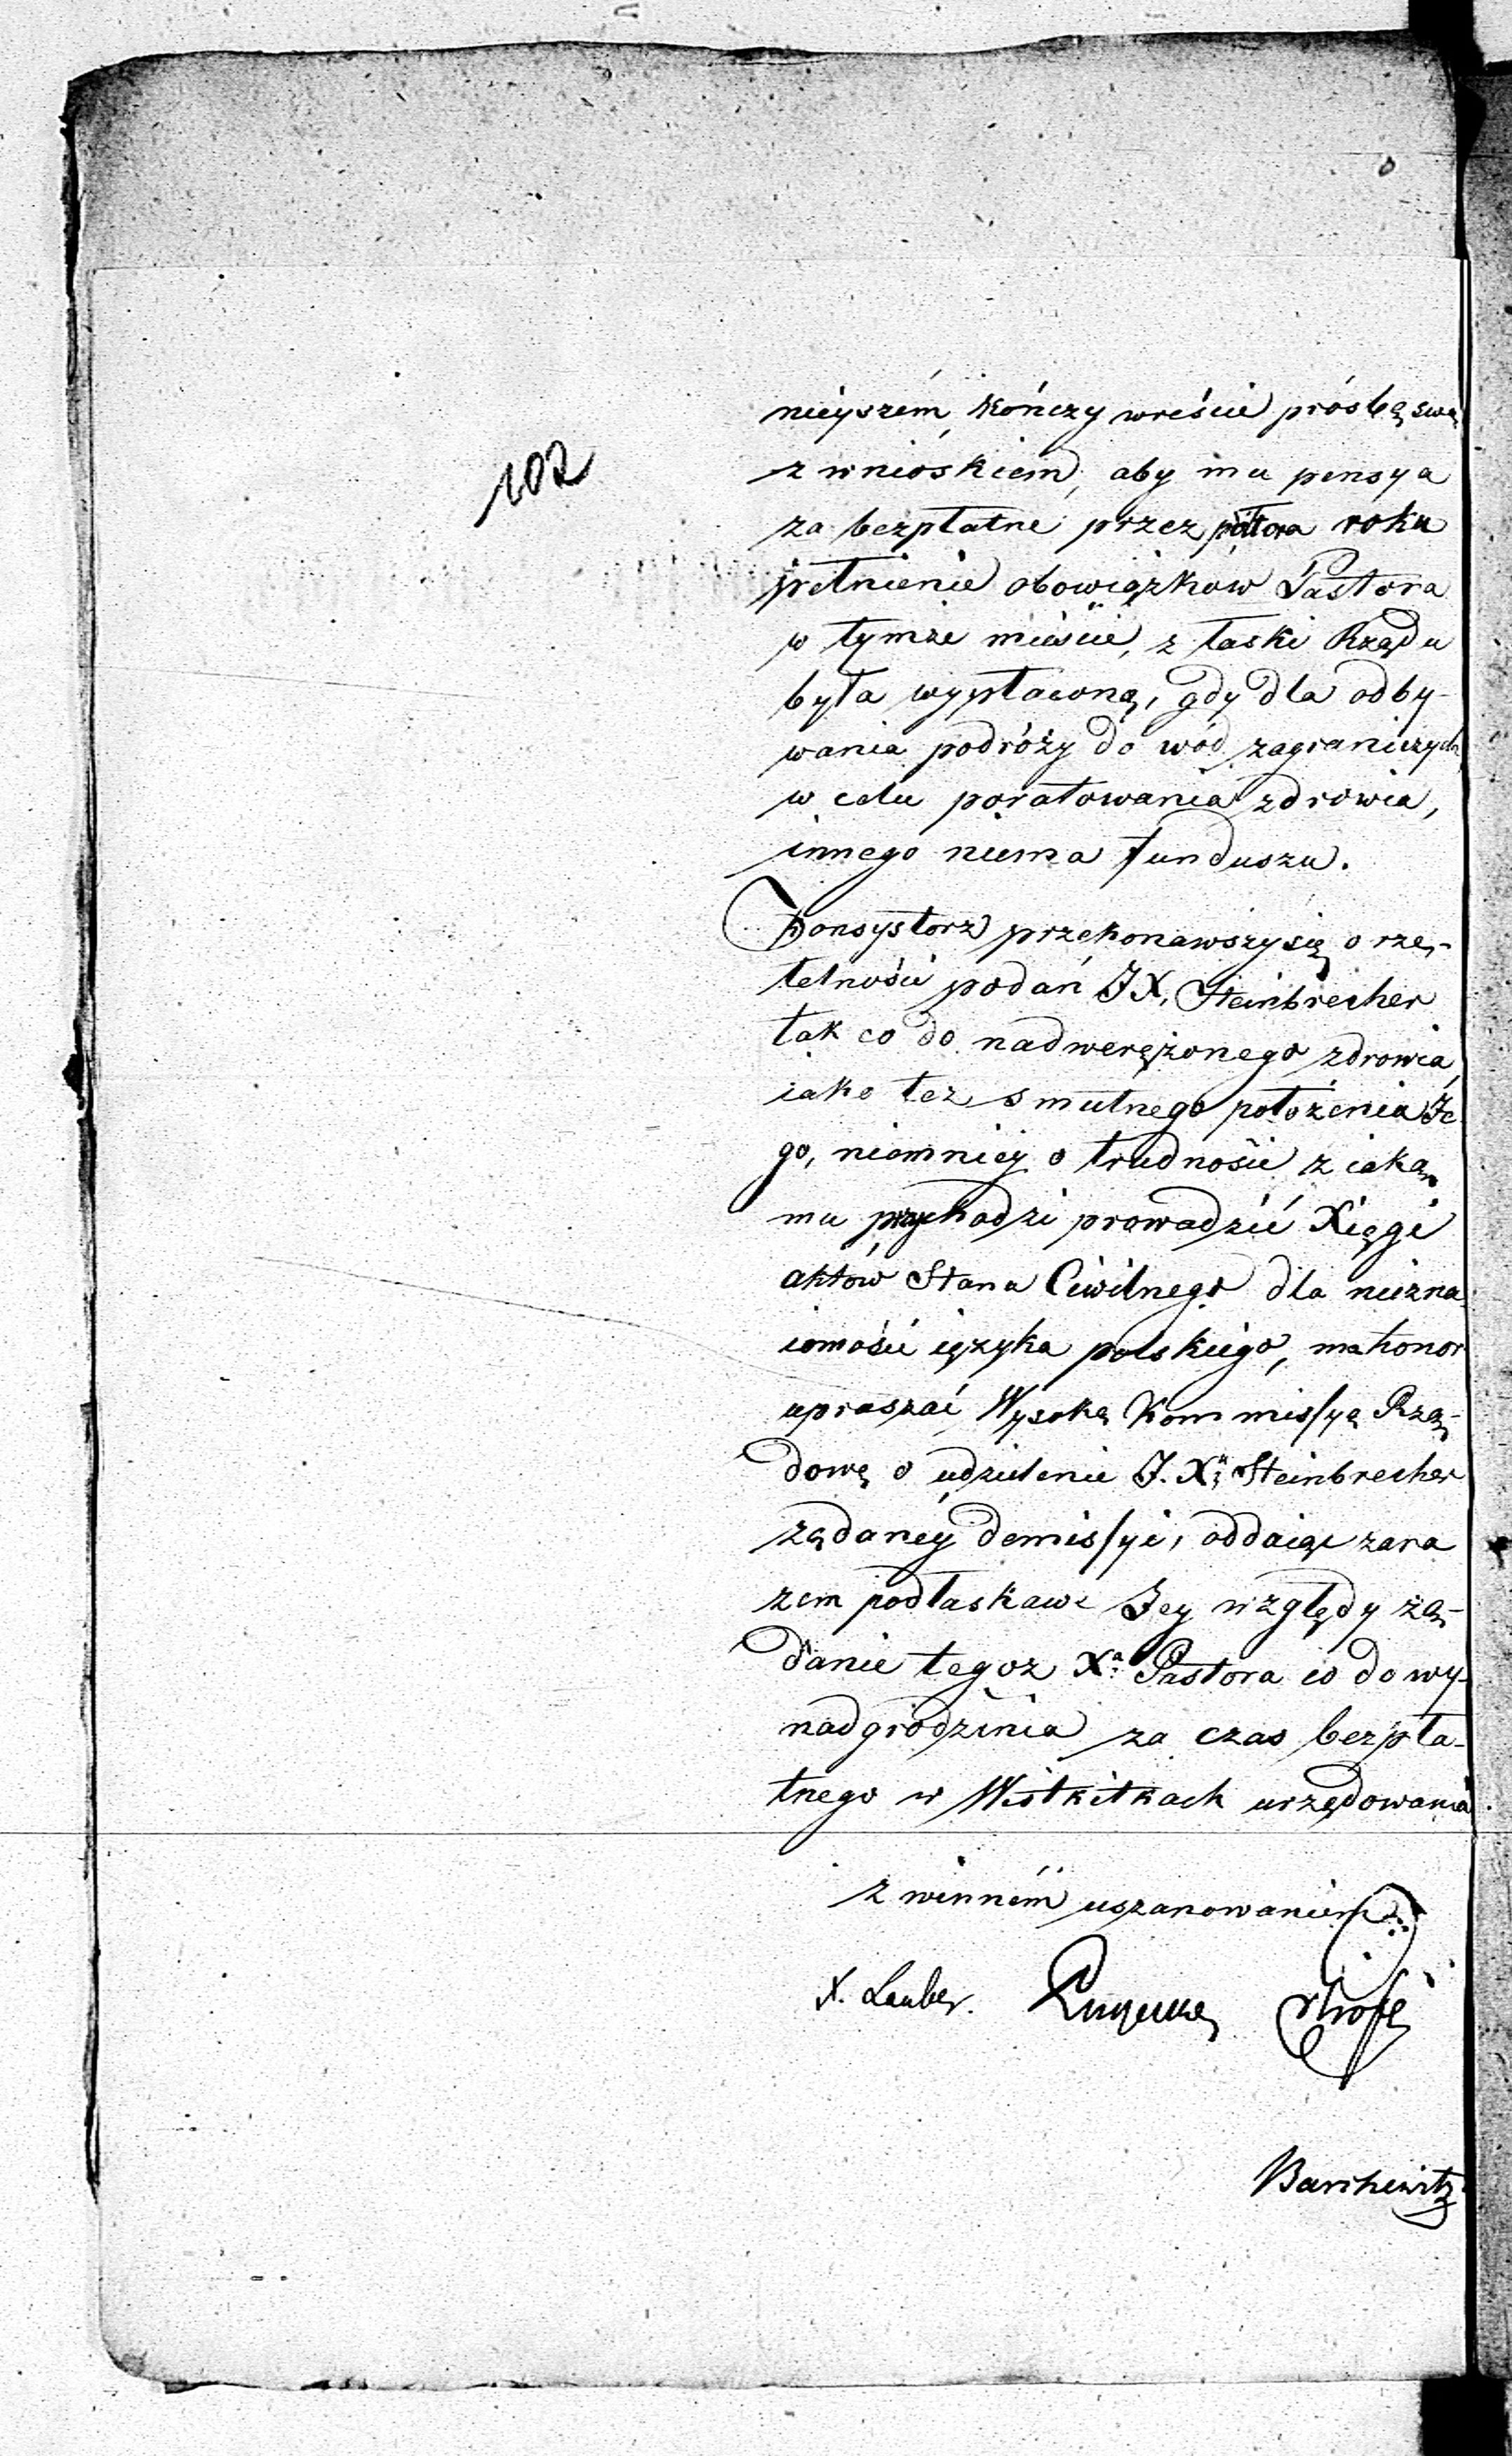 102
nieyszém, kończy wreście prósbę swą
z wnioskiem, aby mu pensya
za bezpłatne przez półtora roku
pełnienie obowiązków Pastora
w tymże mieście, z łaski Rządu
była wypłaconą, gdy dla odby-
wania podróży do wód zagranicznych,
w celu poratowania zdrowia,
innego niema funduszu.
Konsystorz przekonawszy się o rze-
telności podań JX. Steinbrecher
tak co do nadwerężonego zdrowia,
iako też smutnego położenia Je
go, niemniey o trudności z iaką
mu przychodzi prowadzić Xięgi
aktów Stanu Ciwilnego dla niezna
iomości ięzyka polskiego, ma honor
upraszać Wysoką Kommissyą Rzą-
dową o udzielenie J. Xu Steinbrecher
żądaney demissyi, oddaiąc zara
zem pod łaskawe Jey względy żą-
danie tegoż Xa Pastora co do wy-
nadgrodzenia za czas bezpła-
tnego w Wiskitkach urzędowania.
z winném uszanowaniem
X. Lauber.